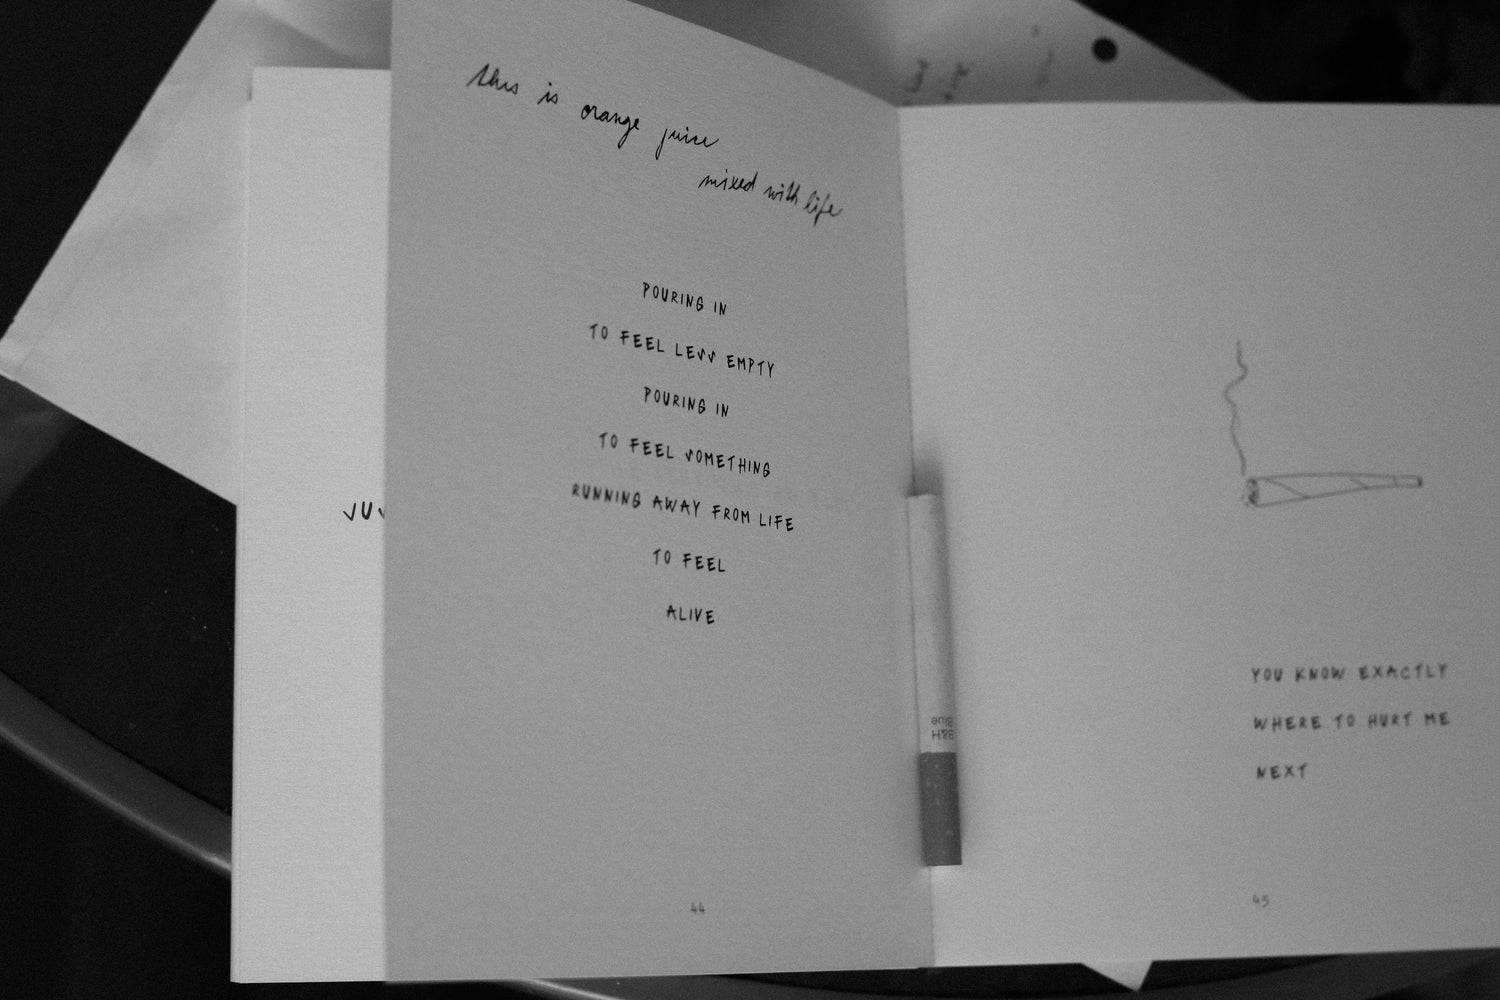 this is orange juice
mixed with life
POURING IN
TO FEEL LESS EMPTY
POURING IN
TO FEEL SOMETHING
RUNNING AWAY FROM LIFE
TO FEEL
ALIVE
44
H&B
Blue
YOU KNOW EXACTLY
WHERE TO HURT ME
NEXT
45